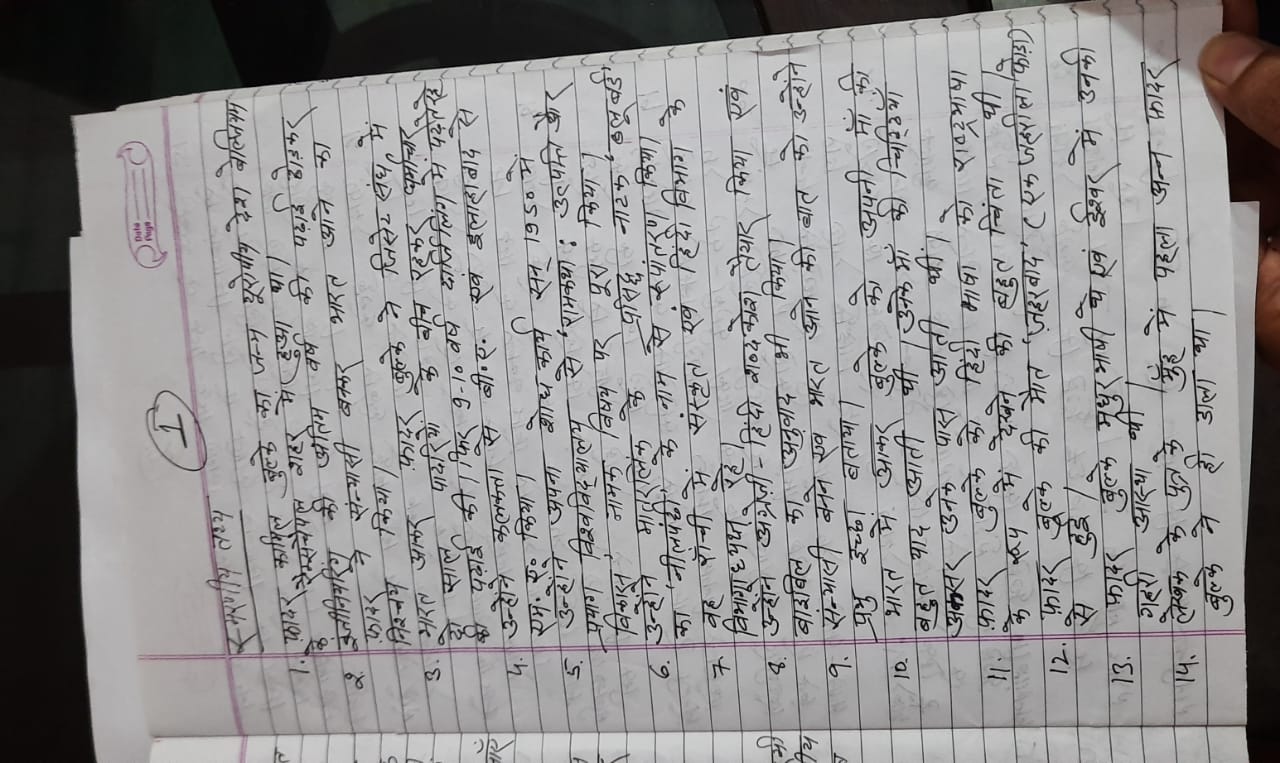 Date
Page
I
1. फादर कामिल बुल्के का जन्म यूरोपीय देश बेल्जियम
के रेम्सचैपल शहर में हुआ था।
2. इंजीनियरिंग की अंतिम वर्ष की पढ़ाई छोड़कर
फादर ने संन्यासी बनकर भारत आने का
निश्चय किया।
3. भारत आकर फादर बुल्के ने जिसेट संघ में
दो साल पादरियों के बीच रहकर धर्माचार
की पढ़ाई की। फिर 9-10 वर्ष दार्जिलिंग में पढ़ते रहे
4. उन्होंने कोलकाता से बी.ए. एवं इलाहाबाद से
एम.ए. किया।
5. उन्होंने अपना शोध कार्य सन् 1950 में
प्रयाग विश्वविद्यालय से, रामकथा: उत्पत्ति और
विकास नामक विषय पर पूरा किया।
6. उन्होंने मातरलिंक के प्रसिद्ध नाटक, ब्लूबर्ड,
का, नीलपंछी के नाम से रूपांतर किया।
7. वह राँची में, सेंट एवं हिंदी विभाग के
विभागाध्यक्ष रहे।
8. उन्होंने अंग्रेजी-हिंदी शब्दकोश तैयार किया एवं
बाइबिल का अनुवाद भी किया।
9. सन्यासी बन एवं भारत जाने की बात को उन्होंने
प्रभु इच्छा बताया।
10. भारत में आकर बुल्के को अपनी माँ की
बहुत याद आती थी। उनकी माँ की चिट्ठियां
अक्सर उनके पास आती थी।
11. फादर बुल्के को हिंदी भाषा को राष्ट्रभाषा
के रूप में देखने की बहुत चिंता थी।
12. फादर बुल्के की मौत, जहरबाद,
से हुई।
13. फादर बुल्के मधुर भाषी थे एवं ईश्वर में उनकी
गहरी आस्था थी।
14. लेखक के पुत्र के मुँह में पहला अन्न फादर
बुल्के ने ही डाला था।